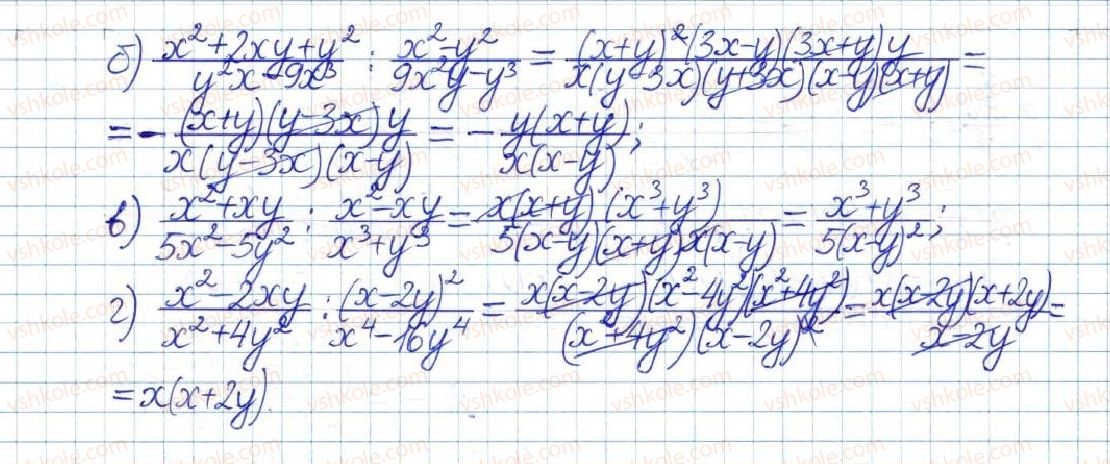 б) (x²+2xy+y²)/(y²x-9x³) : (x²-y²)/(9x²y-y³) = ((x+y)²(3x-y)(3x+y)y)/(x(y-3x)(y+3x)(x-y)(x+y)) =
= -((x+y)(y-3x)y)/(x(y-3x)(x-y)) = -(y(x+y))/(x(x-y));
в) (x²+xy)/(5x²-5y²) : (x²-xy)/(x³+y³) = (x(x+y)(x³+y³))/(5(x-y)(x+y)x(x-y)) = (x³+y³)/(5(x-y)²);
г) (x²-2xy)/(x²+4y²) : ((x-2y)²)/(x⁴-16y⁴) = (x(x-2y)(x²-4y²)(x²+4y²))/((x²+4y²)(x-2y)²) = (x(x-2y)(x+2y))/(x-2y) =
= x(x+2y).